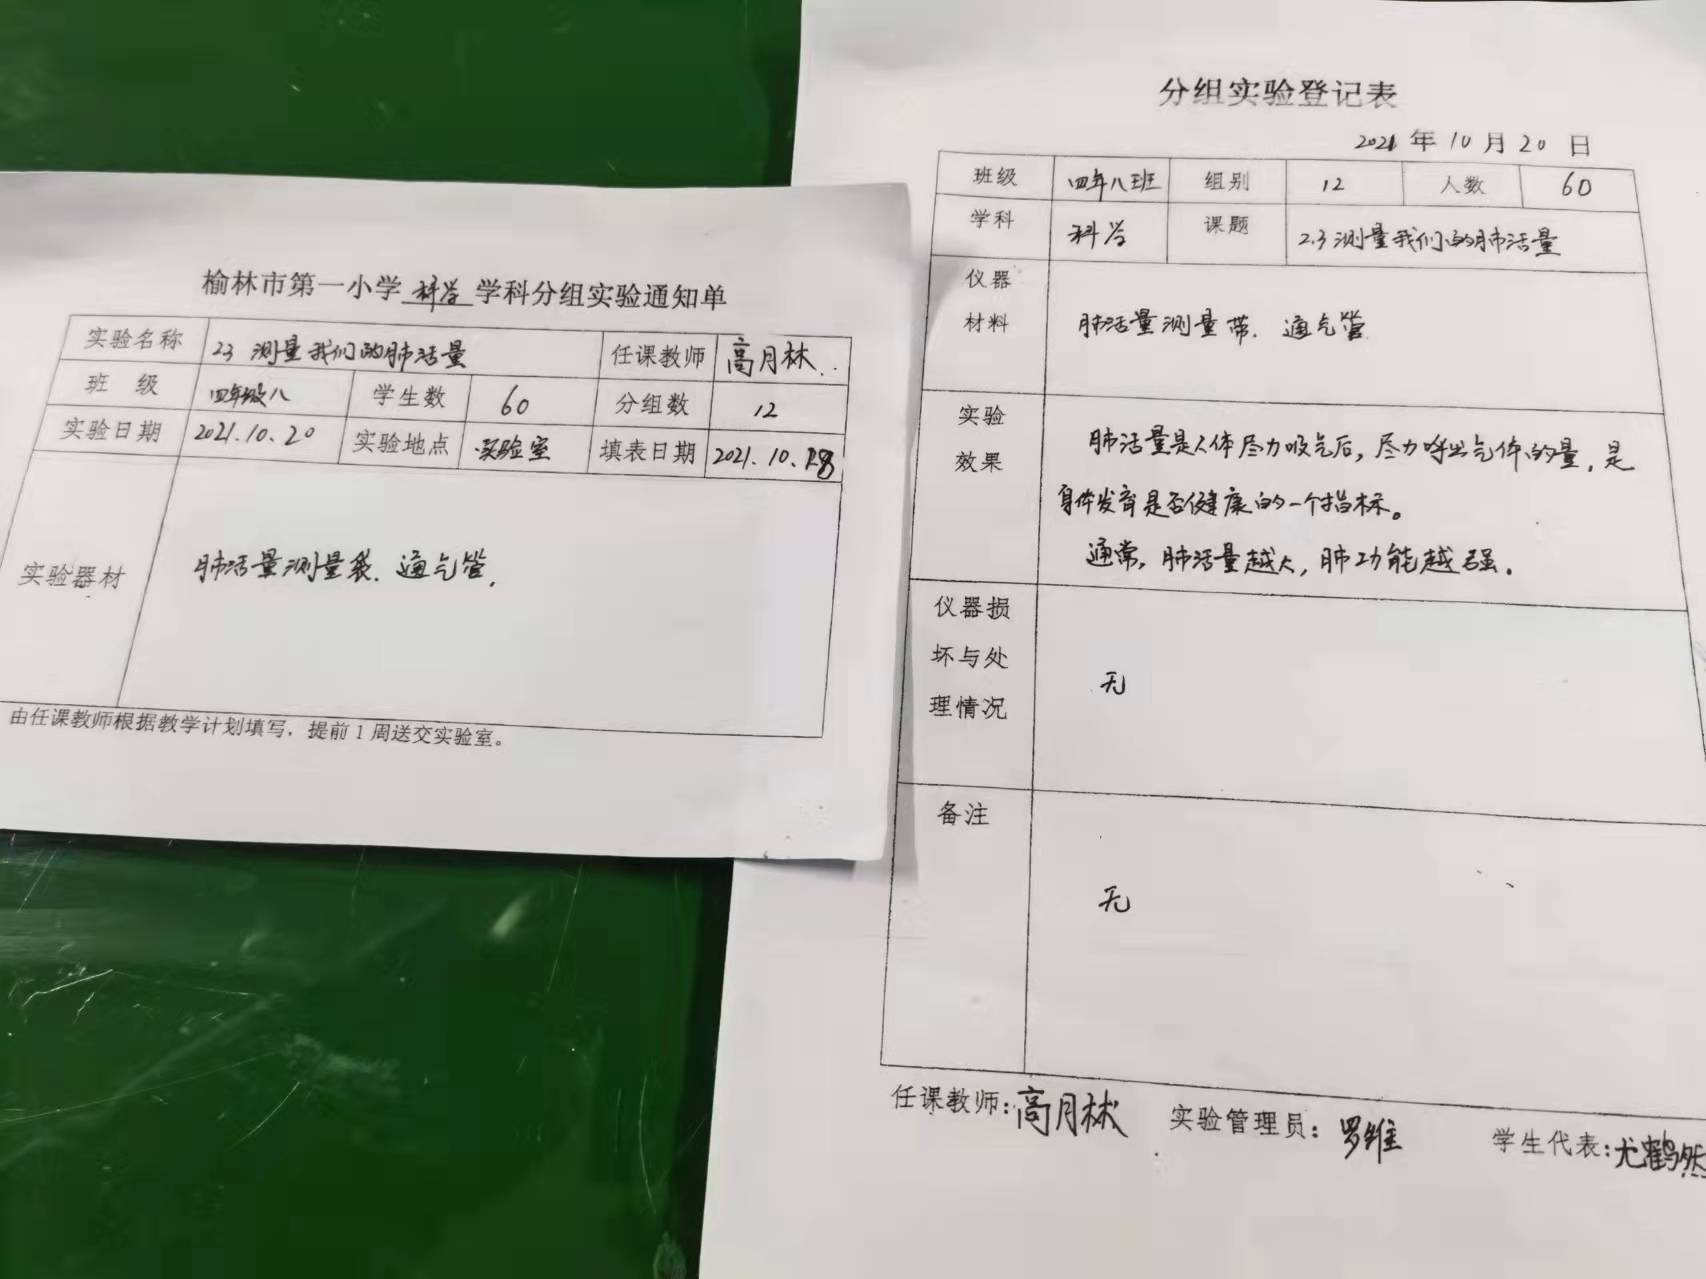 榆林市第一小学 科学 学科分组实验通知单
实验名称 2.3 测量我们的肺活量 任课教师 高月林
班 级 四年级八 学生数 60 分组数 12
实验日期 2021.10.20 实验地点 实验室 填表日期 2021.10.18
实验器材 肺活量测量袋、通气管
由任课教师根据教学计划填写,提前1周送交实验室。
分组实验登记表
2021 年 10 月 20 日
班级 四年八班 组别 12 人数 60
学科 科学 课题 2.3 测量我们的肺活量
仪器
材料
肺活量测量带、通气管
实验
效果
肺活量是人体尽力吸气后,尽力呼出气体的量,是
身体发育是否健康的一个指标。
通常,肺活量越大,肺功能越强。
仪器损
坏与处
理情况
无
备注
无
任课教师:高月林 实验管理员:罗维 学生代表:尤鹤然